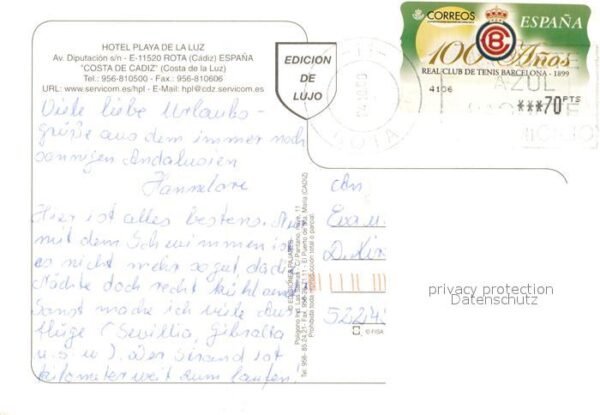 HOTEL PLAYA DE LA LUZ
Av. Diputación s/n - E-11520 ROTA (Cádiz) ESPAÑA
"COSTA DE CADIZ" (Costa de la Luz)
Tel.: 956-810500 - Fax.: 956-810606
URL: www.servicom.es/hpl - E-Mail: hpl@cdz.servicom.es
EDICION
DE
LUJO
CORREOS
ESPAÑA
100 Años
REAL CLUB DE TENIS BARCELONA - 1899
4106
***70 PTS
AZUL
ROTA
Viele liebe Urlaubs-
grüße aus dem immer noch
sonnigen Andalusien
Hannelore
Hier ist alles bestens. Nur
mit dem Schwimmen ist
es nicht mehr so gut, da die
Nächte doch recht kühl sind.
Sonst mache ich viele Aus-
flüge (Sevilla, Gibraltar
u.s.w). Der Strand ist
kilometerweit zum laufen.
An
Eva
D.
5224
EDICIONES PIJARES
Polígono Ind. Las Salinas - C/. Pantano, Nave, 11
El Puerto de Sta. María (CADIZ)
Prohibida toda reproducción total o parcial.
© FISA
privacy protection
Datenschutz